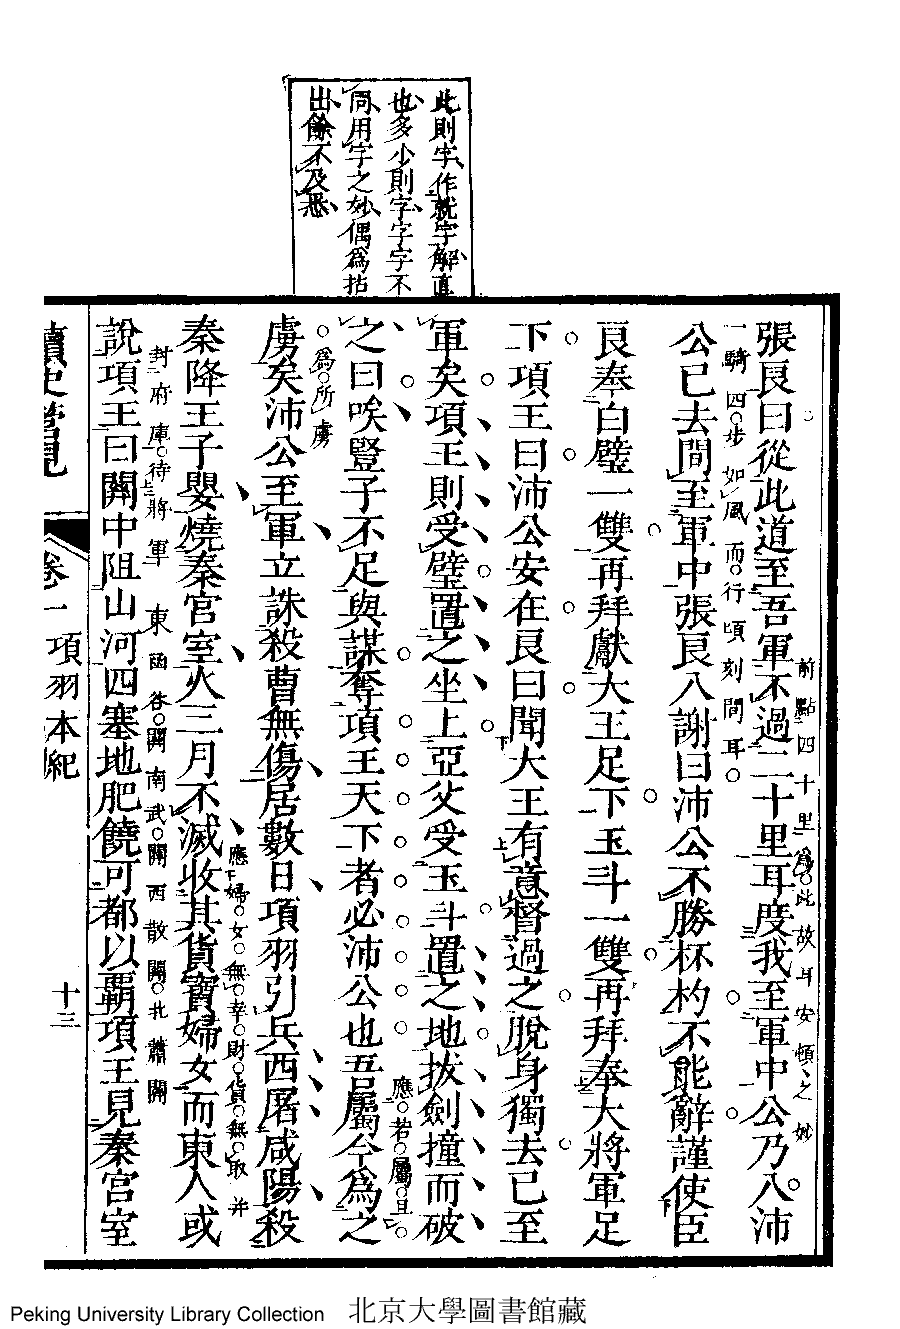 此則字作就字解直
也多少則字字字不
同用字之妙偶為拈
出餘不及悉
前點四十里為此故耳安頓之妙
張良曰從此道至吾軍不過二十里耳度我至軍中公乃入沛
一騎四步如風而行頃刻間耳
公已去間至軍中張良入謝曰沛公不勝杯杓不能辭謹使臣
良奉白璧一雙再拜獻大王足下玉斗一雙再拜奉大將軍足
下項王曰沛公安在良曰聞大王有意督過之脫身獨去已至
軍矣項王則受璧置之坐上亞父受玉斗置之地拔劍撞而破
應若屬且
之曰唉豎子不足與謀奪項王天下者必沛公也吾屬今為之
為所虜
虜矣沛公至軍立誅殺曹無傷居數日項羽引兵西屠咸陽殺
應婦女無幸財貨無取并
秦降王子嬰燒秦宮室火三月不滅收其貨寶婦女而東人或
封府庫待將軍 東函谷關南武關西散關北蕭關
說項王曰關中阻山河四塞地肥饒可都以霸項王見秦宮室
讀史管見 卷一 項羽本紀 十三
Peking University Library Collection 北京大學圖書館藏